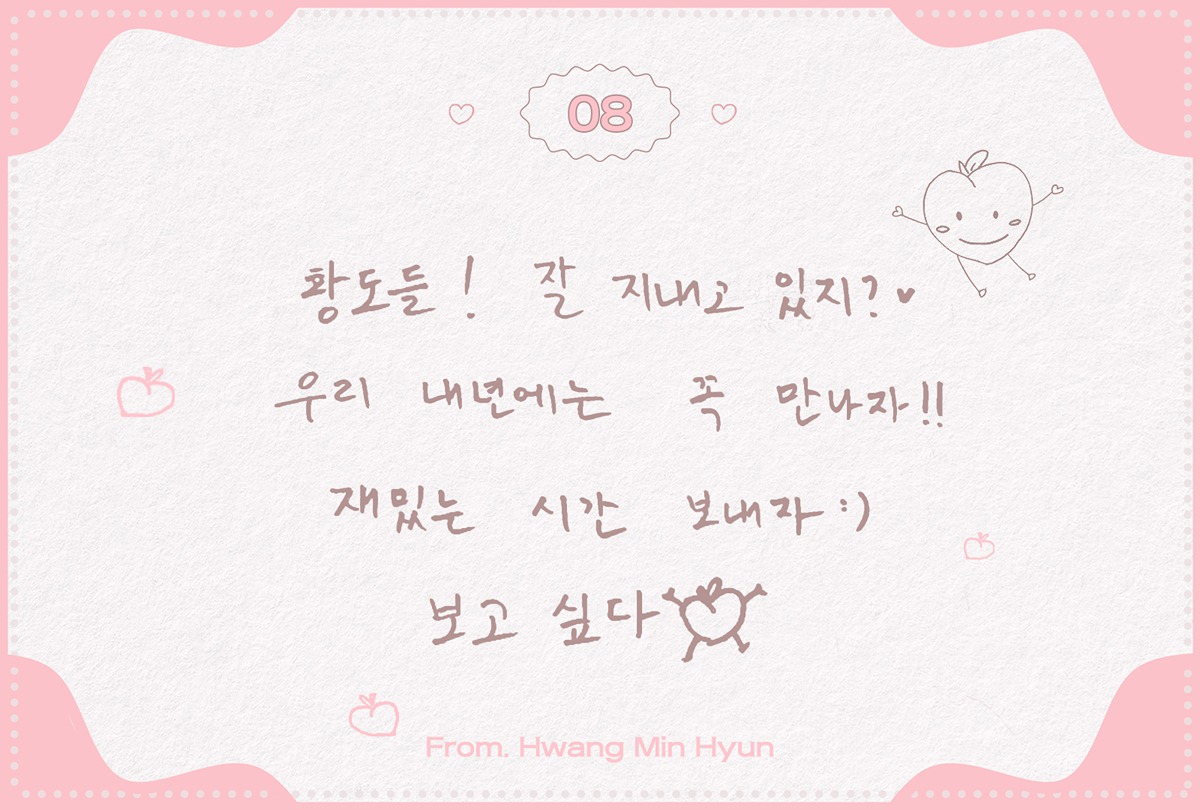 08
황도들! 잘 지내고 있지?♥
우리 내년에는 꼭 만나자!!
재밌는 시간 보내자 :)
보고 싶다
From. Hwang Min Hyun